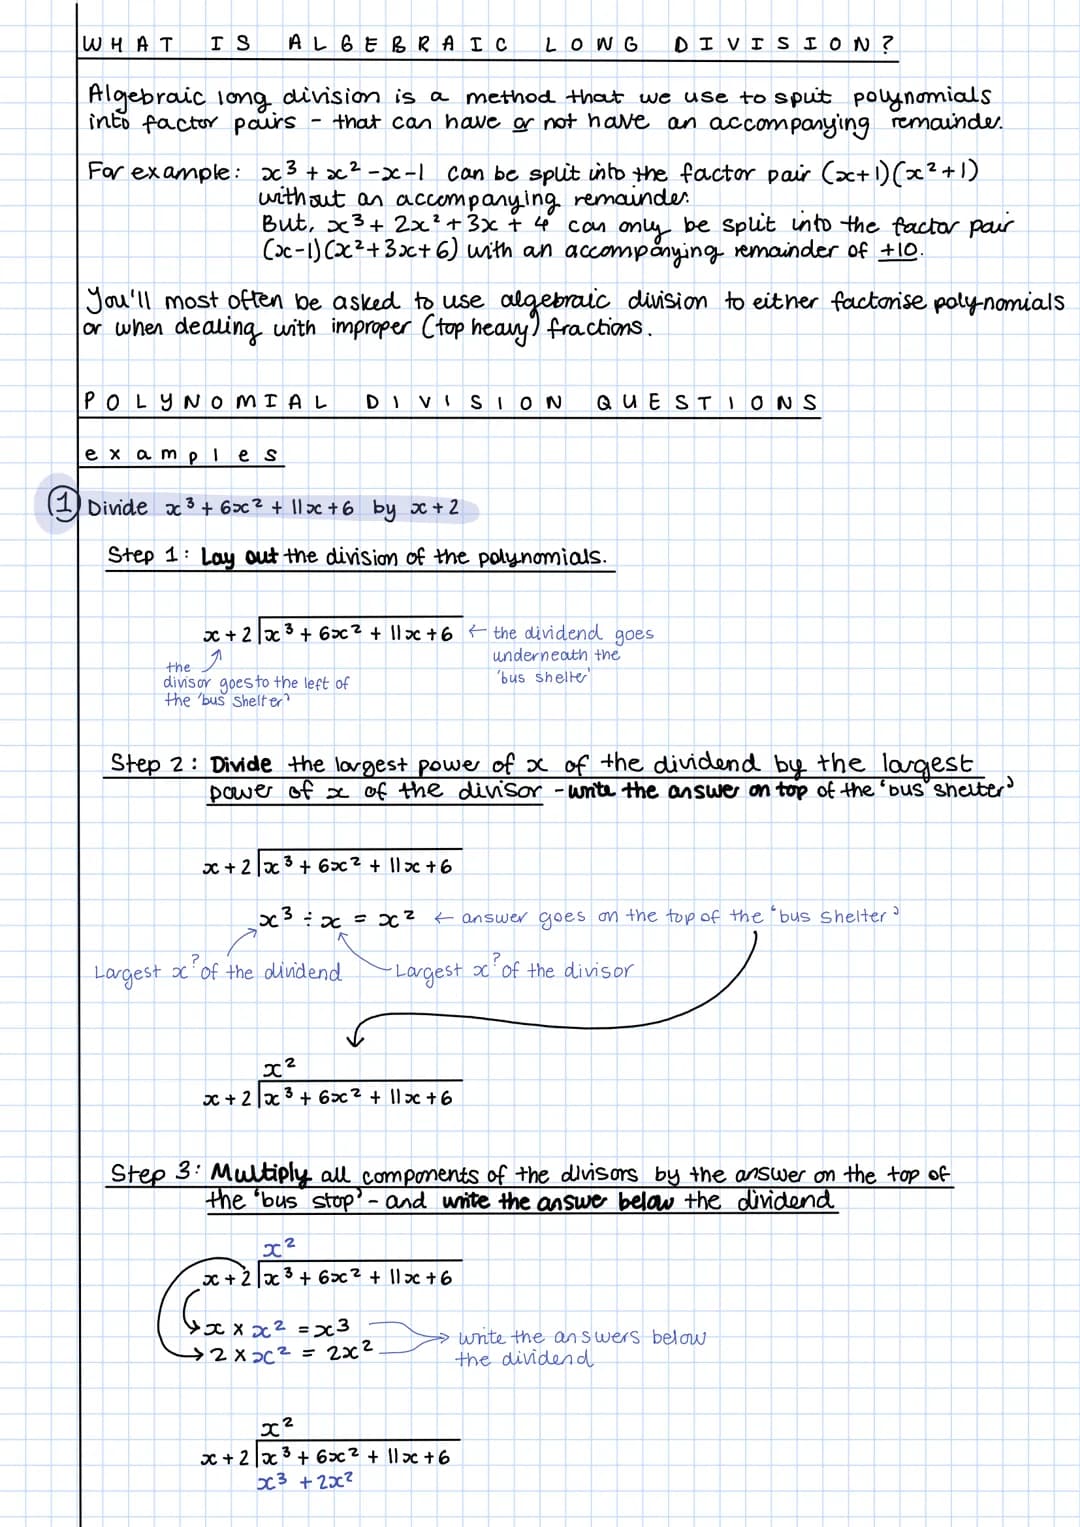 WHAT IS ALGEBRAIC LONG DIVISION?
Algebraic long division is a method that we use to split polynomials
into factor pairs - that can have or not have an accompanying remainder.
For example: x³ + x² - x - 1 can be split into the factor pair (x+1)(x²+1)
without an accompanying remainder.
But, x³ + 2x² + 3x + 4 can only be split into the factor pair
(x-1)(x²+3x+6) with an accompanying remainder of +10.
You'll most often be asked to use algebraic division to either factorise polynomials
or when dealing with improper (top heavy) fractions.
POLYNOMIAL DIVISION QUESTIONS
examples
① Divide x³ + 6x² + 11x + 6 by x + 2
Step 1: Lay out the division of the polynomials.
x + 2 | x³ + 6x² + 11x + 6 ← the dividend goes
underneath the
'bus shelter'
the
divisor goes to the left of
the 'bus shelter'
Step 2: Divide the largest power of x of the dividend by the largest
power of x of the divisor - write the answer on top of the 'bus shelter'
x + 2 | x³ + 6x² + 11x + 6
x³ ÷ x = x² ← answer goes on the top of the 'bus shelter'
Largest x? of the dividend
Largest x? of the divisor
x²
x + 2 | x³ + 6x² + 11x + 6
Step 3: Multiply all components of the divisors by the answer on the top of
the 'bus stop' - and write the answer below the dividend
x²
x + 2 | x³ + 6x² + 11x + 6
x × x² = x³
2 × x² = 2x²
write the answers below
the dividend
x²
x + 2 | x³ + 6x² + 11x + 6
x³ + 2x²